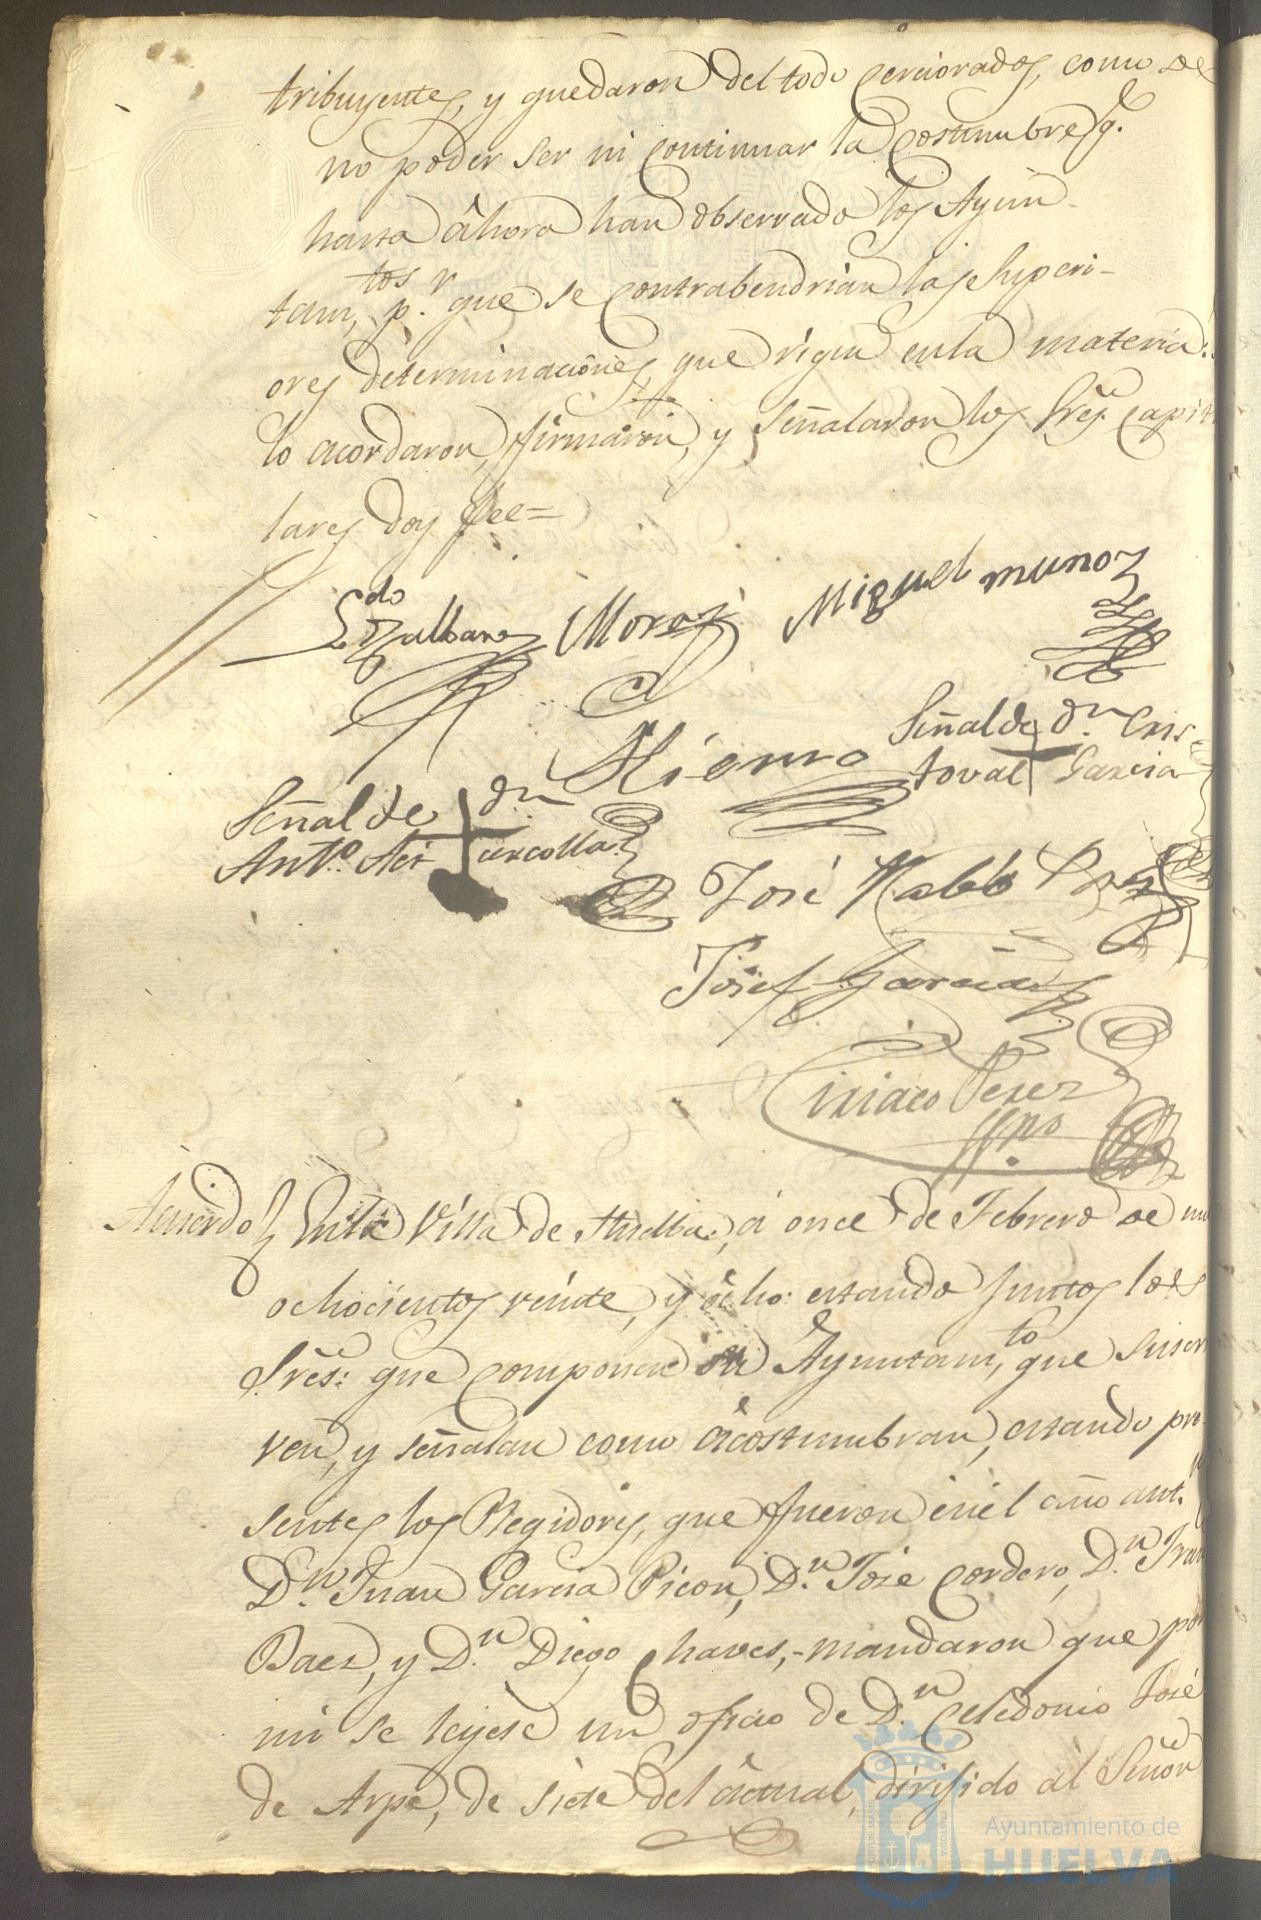 tribuyentes, y quedaron del todo cerciorados, como de
no poder ser ni continuar la costumbre q.e
hasta âhora han observado los Ayun-
tam,tos p.r que se contrabendrian las Superi-
ores determinaciônes, que rigen en la materia:
lo acordaron, firmaron, y señalaron los Sres. Capit
lares doy fee=
Ldo Zalbanez Mora Miguel munoz
Hierro
Señal de dn. Cris-
toval + Garcia
Señal de dn
Anto. +
José Pabló Perez
Josef Garcia
Ciriaco Perez
Acuerdo En la Villa de Huelba, á once de Febrero de mil
ochocientos veinte, y ôcho: estando juntos los
Sres: que componen su Ayuntam,to que suscri
ven, y señalan como âcostumbran, estando pre-
sentes los Regidores, que fueron en el año ant.
D.n Juan Garcia Picon, D.n Jose Cordero, D.n Fran
Baez, y D.n Diego Chaves,- mandaron que por
mi se leyese un oficio de D.n Celedonio José
de Arpe, de siete del âctual, dirijido al Señor
Ayuntamiento de
HUELVA